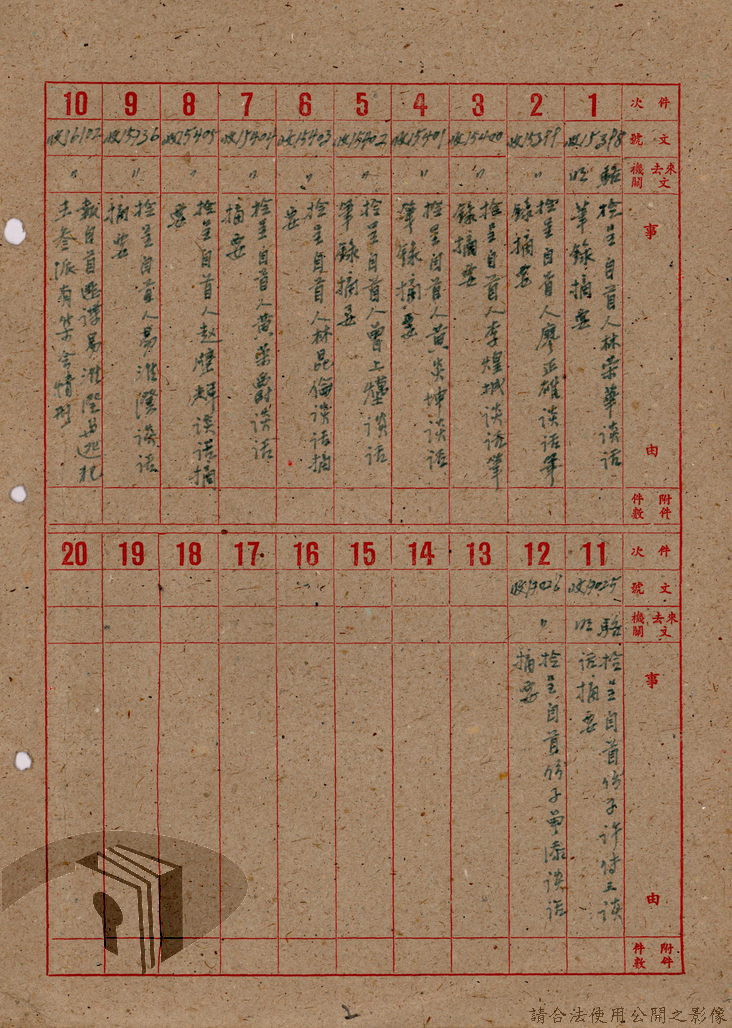 件次
文號
來去文機關
事由
附件件數
1
收15398
檢呈自首人林荣華談话
筆錄摘要
2
收15399
〃
檢呈自首人廖正雄談话筆
錄摘要
3
收15400
〃
檢呈自首人李煌城談话筆
錄摘要
4
收15401
〃
檢呈自首人黄炎坤談话
筆錄摘要
5
收15402
〃
檢呈自首人曾上 談话
筆錄摘要
6
收15403
〃
檢呈自首人林昆倫談话摘
要
7
收15404
〃
檢呈自首人黄荣爵談话
摘要
8
收15405
〃
檢呈自首人赵 輝談话摘
要
9
收15736
〃
檢呈自首人易淮澄談话
摘要
10
收16102
〃
報自首匪諜易淮澄 
主 派有 情形
件次
文號
來去文機關
事由
附件件數
11
收19025
檢呈自首份子许 談
话摘要
12
收19026
〃
檢呈自首份子 添談话
摘要
13
14
15
16
17
18
19
20
2
請合法使用公開之影像